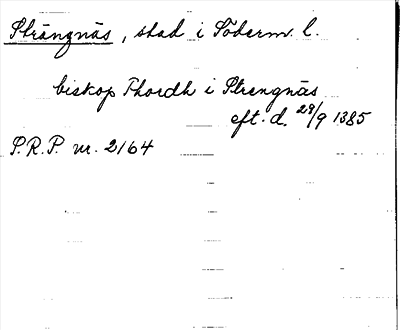 Strängnäs, stad i Söderm. l.
biskop Thordh i Strengnäs
eft. d. 29/9 1385
S.R.P. nr. 2164